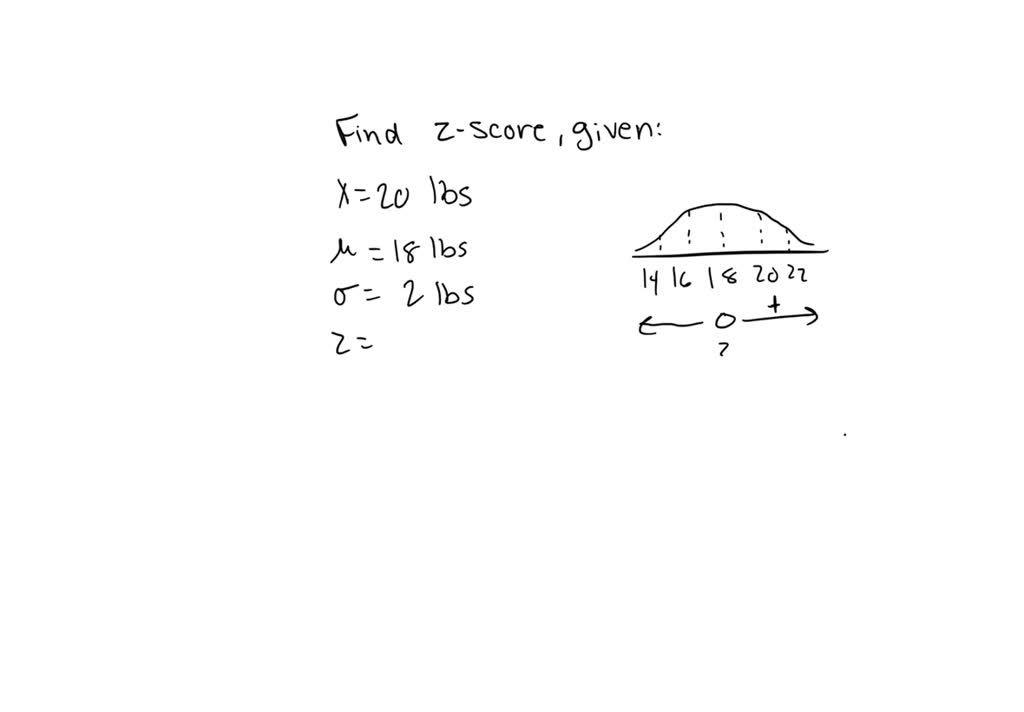 Find z-score, given:
x = 20 lbs
μ = 18 lbs
σ = 2 lbs
z =
14 16 18 20 22
+
0
z